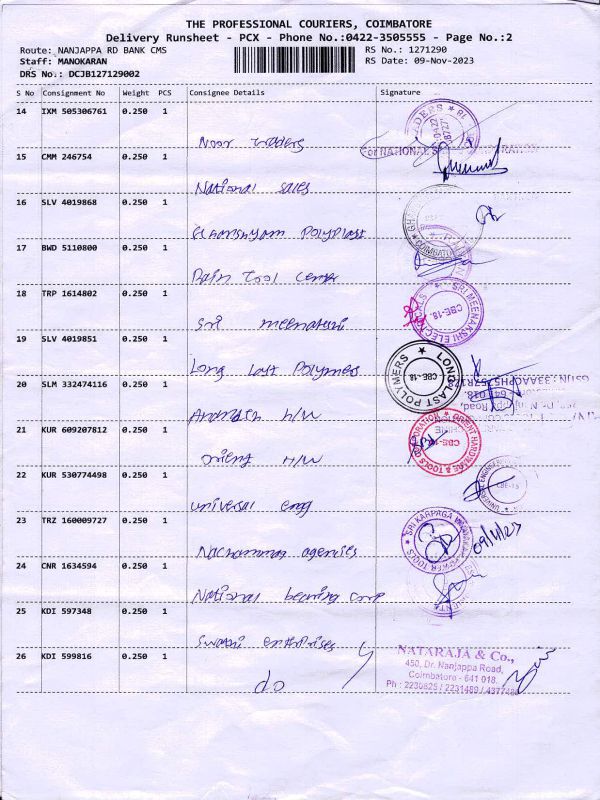 THE PROFESSIONAL COURIERS, COIMBATORE
Delivery Runsheet - PCX - Phone No.:0422-3505555 - Page No.:2
Route: NANJAPPA RD BANK CMS
RS No.: 1271290
Staff: MANOKARAN
RS Date: 09-Nov-2023
DRS No.: DCJB127129002
S No Consignment No Weight PCS Consignee Details Signature
14 IXM 505306761 0.250 1
Noor traders
15 CMM 246754 0.250 1
National sales
16 SLV 4019868 0.250 1
Ghanshyam Polyplast
17 BWD 5110800 0.250 1
Rain Tool Center
18 TRP 1614802 0.250 1
Sri meenatchi
19 SLV 4019851 0.250 1
Long Last Polymers
20 SLM 332474116 0.250 1
H/W
21 KUR 609207812 0.250 1
orient H/W
22 KUR 530774498 0.250 1
universal eng
23 TRZ 160009727 0.250 1
Nachammai agencies
24 CNR 1634594 0.250 1
National bearing corp
25 KDI 597348 0.250 1
Swathi enterprises
26 KDI 599816 0.250 1
do
SRI MEENAKSHI ELECTRICALS
CBE-18.
LONGLAST POLYMERS
CBE-18
ORIENT HARDWARE & TOOLS CORPORATION
CBE-18.
SRI KARPAGA VINAYAGA POWER TOOLS
09/11/23
NATARAJA & Co.,
450, Dr. Nanjappa Road,
Coimbatore - 641 018.
Ph : 2230625 / 2231489 / 4377486